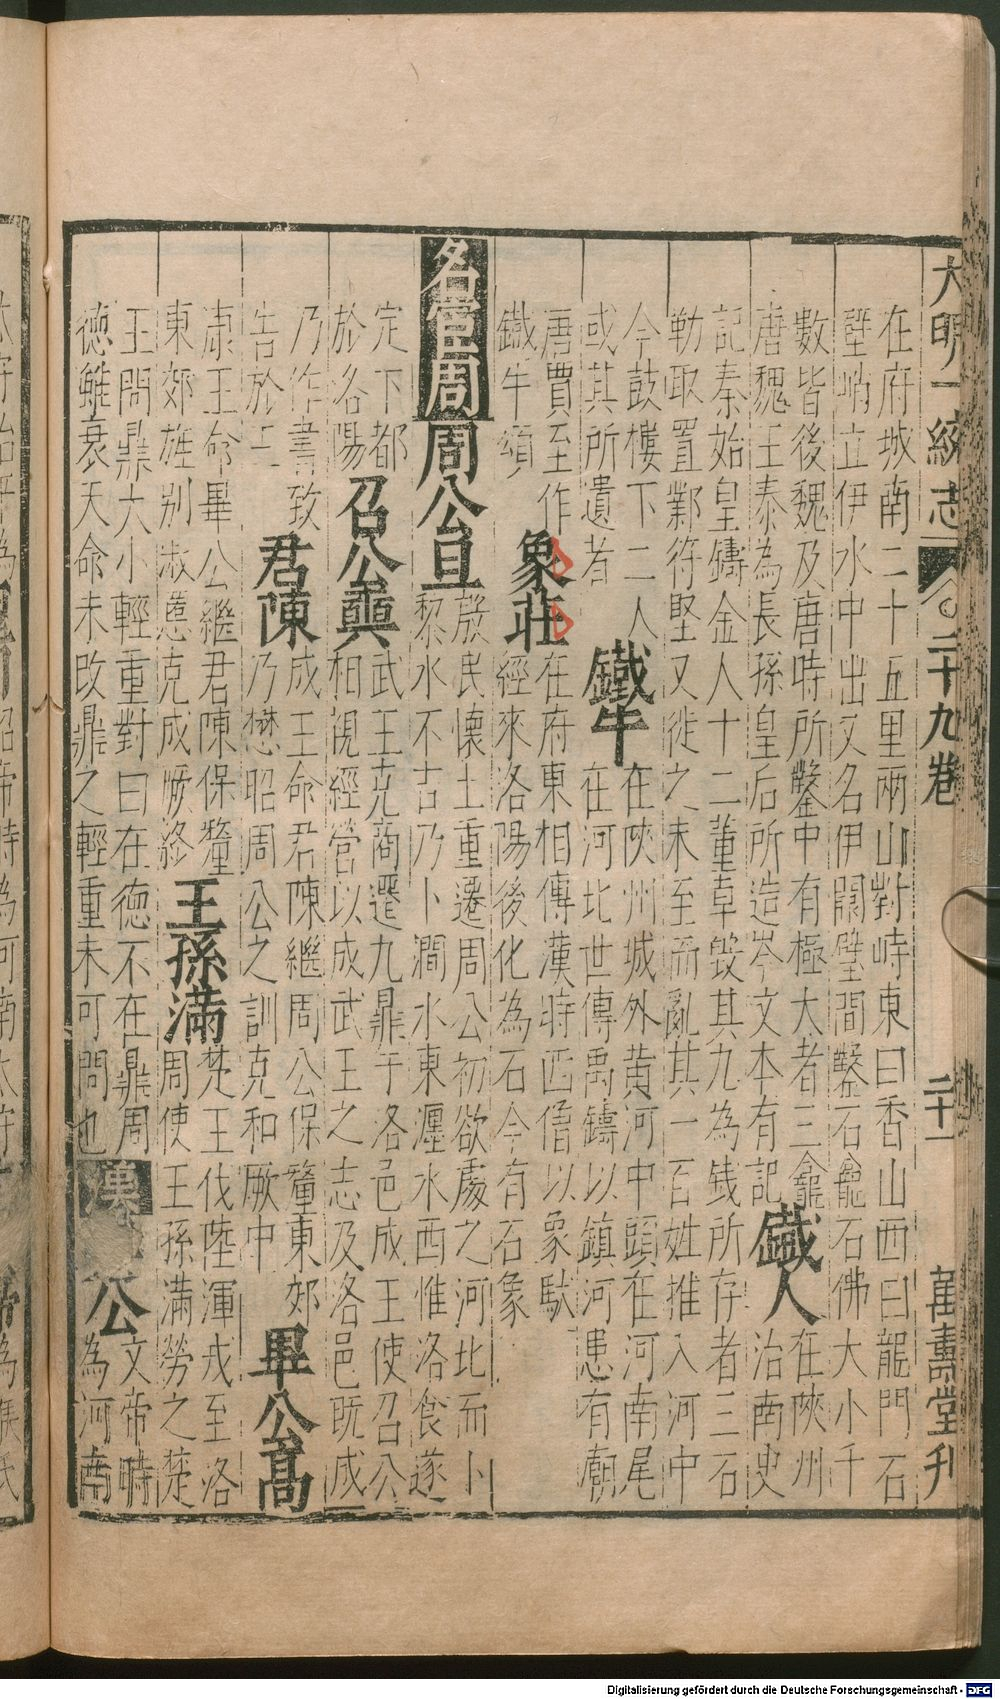 大明一統志 二十九卷 二十一 萬壽堂刋
在府城南二十五里兩山對峙東曰香山西曰龍門石
壁峭立伊水中出又名伊闕壁間鑿石龕石佛大小千
數皆後魏及唐時所鑿中有極大者三龕 鐵人 在陝州
唐魏王泰為長孫皇后所造岑文本有記 治南史
記秦始皇鑄金人十二董卓毀其九為錢所存者三石
勒取置鄴符堅又徙之未至而亂其一百姓推入河中
今鼓樓下二人 鐵牛 在陝州城外黃河中頭在河南尾
或其所遺者 在河北世傳禹鑄以鎮河患有廟
唐賈至作 象莊 在府東相傳漢時西僧以象馱
鐵牛頌 經來洛陽後化為石今有石象
名宦周 周公旦 殷民懷土重遷周公初欲處之河北而卜
黎水不吉乃卜澗水東瀍水西惟洛食遂
定下都 召公奭 武王克商遷九鼎于洛邑成王使召公
於洛陽 相視經營以成武王之志及洛邑既成
乃作書致 君陳 成王命君陳繼周公保釐東郊 畢公高
告於王 乃懋昭周公之訓克和厥中
康王命畢公繼君陳保釐 王孫滿 楚王伐陸渾戎至洛
東郊旌別淑慝克成厥終 周使王孫滿勞之楚
王問鼎大小輕重對曰在德不在鼎周 漢 公 文帝時
德雖衰天命未改鼎之輕重未可問也 為河南
Digitalisierung gefördert durch die Deutsche Forschungsgemeinschaft - DFG